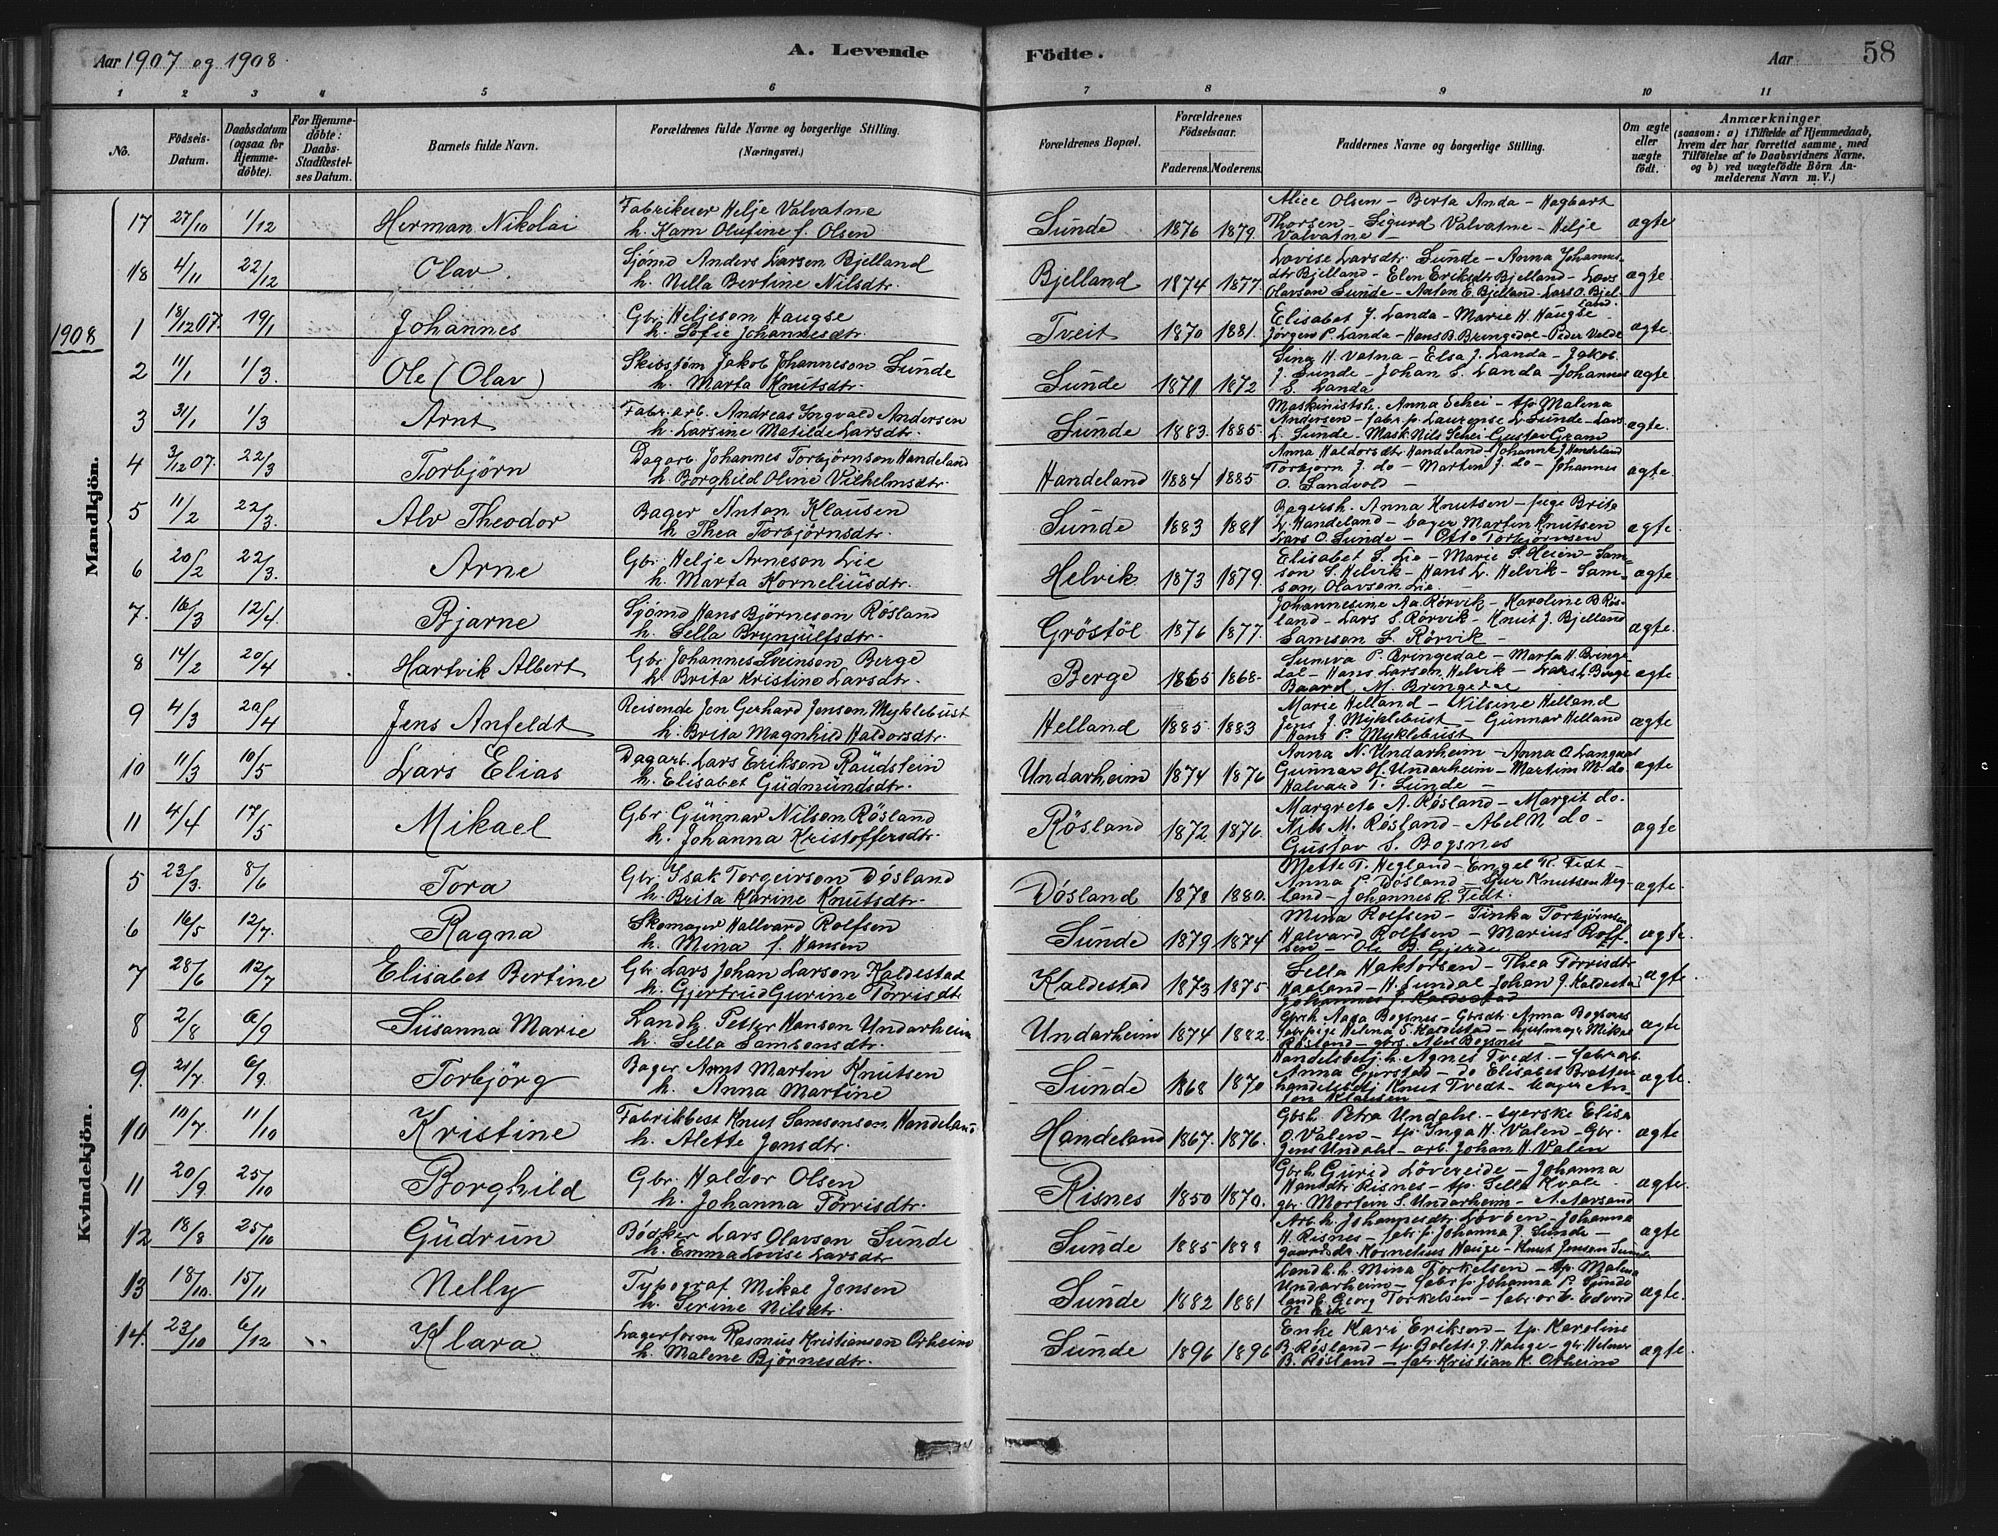 Aar 1907 og 1908.
A. Levende
Födte.
Aar
58
1 2 3 4 5 6 7 8 9 10 11
No.
Födsels-
Datum.
Daabsdatum
(ogsaa for
Hjemme-
döbte).
For Hjemme-
döbte:
Daabs-
Stadfæstel-
ses Datum.
Barnets fulde Navn.
Forældrenes fulde Navne og borgerlige Stilling.
(Næringsvei.)
Forældrenes Bopæl.
Forældrenes
Födselsaar.
Faderens. Moderens.
Faddernes Navne og borgerlige Stilling.
Om ægte
eller
uægte
födt.
Anmærkninger
(saasom: a) i Tilfælde af Hjemmedaab,
hvem der har forrettet samme, med
Tilföielse af to Daabsvidners Navne,
og b) ved uægtefödte Börn An-
melderens Navn m. V.)
Mandkjön.
17 27/10 1/12 Herman Nikolai
Fabrikeier Helje Valvatne
h. Karn Olufine f. Olsen
Sunde 1876 1879.
Alice Olsen - Berta Anda - Hagbart
Thorsen - Sigurd Valvatne - Helje
Valvatne -
ægte
18 4/11 22/12 Olav.
Sjømd Anders Larsen Bjelland
h. Nilla Bertine Nilsdtr.
Bjelland 1874 1877.
Lovise Larsdtr Sunde - Anna Johannes-
dtr Bjelland - Elen Eriksdtr Bjelland - Lars
Olavson Sunde - Anton E. Bjelland - Lars O. Bjel-
land.
ægte.
1908
1 18/12 07. 19/1 Johannes
Gbr. Heljeson Haugse
h. Sofie Johannesdtr
Tveit 1870 1881.
Elisabet J. Landa - Marie H. Haugse
Jörgen P. Landa - Hans B. Bringedal - Peder Valde
ægte.
2 11/1 1/3. Ole (Olav)
Skibstøm Jakob Johanneson Sunde
h. Marta Knutsdtr.
Sunde 1871 1872
Sina H. Vatna - Elsa J. Landa - Jakob
J. Sunde - Johan S. Landa - Johannes
S. Landa
ægte
3 31/1 1/3 Arnt
Fabr. arb. Andreas Ingvald Andersen
h. Larsine Matilde Larsdtr.
Sunde 1883. 1885.
Maskinistsh. Anna Schei - tp Malena
Andersen - fabr. p. Laurense L. Sunde - Lars
L. Sunde - Mask. Nils Schei - Gustav Gram
ægte.
4 3/12 07. 22/3 Torbjörn
Dagarb. Johannes Torbjörnson Handeland
h. Borghild Oline Vilhelmsdtr.
Handeland 1884 1885
Anna Haldorsdtr Handeland - Johanne J Handeland
Torbjørn J. do - Marten J. do - Johannes
O. Sandvold -
ægte.
5 11/2 22/3. Alv Theodor
Bager Anton Klausen
h Thea Torbjørnsdtr.
Sunde 1883 1881
Bagersh. Anna Knutsen - pige Brita
L. Handeland - bager Martin Knutsen
Lars O. Sunde - Otto Torbjørnsen
ægte.
6 20/2 22/3. Arne
Gbr. Helje Arneson Lie
h. Marta Korneliusdtr.
Helvik 1873 1879.
Elisabet S. Lie - Marie S. Heien - Sam-
son S. Helvik - Hans L. Helvik - Sam-
son Olavson Lie.
ægte
7. 16/3 12/4. Bjarne
Sjømd Hans Bjørneson Røsland
h. Sella Brynjülfsdtr.
Gröstöl 1876 1877.
Johannesine Aa. Rørvik - Karoline B Røs-
land - Lars S. Rørvik - Knut J. Bjelland
Samson S. Rørvik -
ægte.
8 14/2 20/4 Hartvik Albert
Gbr. Johannes Sveinson Berge
h. Brita Kristine Larsdtr.
Berge 1865 1868.
Suniva P. Bringedal - Marta H. Bringe-
dal - Hans Larsen Helvik - Lars L. Berge
Baard M. Bringedal
ægte
9 4/3 20/4 Jens Anfeldt
Reisende Jon Gerhard Jonson Myklebust
h. Brita Magnhild Haldorsdtr.
Helland 1885 1883
Marie Helland - Nilsine Helland
Jens J. Myklebust - Gunnar Helland
Hans P. Myklebust
ægte
10 11/3 10/5 Lars Elias
Dagarb. Lars Erikson Raüdstein
h. Elisabet Güdmündsdtr.
Undarheim 1874 1876
Anna N. Undarheim - Anna O. Langaas
Gunnar Undarheim - Martim M. do
Halvard T. Sunde -
ægte
11 4/4 17/5 Mikael
Gbr. Günnar Nilson Røsland
h. Johanna Kristoffersdtr.
Røsland 1872 1876.
Margreta A. Røsland - Margit do.
Nils M. Røsland - Abel N do -
Gustav S. Bogsnes
ægte
Kvindekjön.
5 23/3. 8/6 Tora
Gbr. Isak Torgeirson Døsland
h. Brita Karine Knutsdtr.
Døsland 1878 1880.
Mette T. Hegland - Engel K. Fedt -
Anna P. Døsland - Sjur Knutsen Heg-
land - Johannes K. Fedt.
ægte.
6 16/5 12/7. Ragna
Skomager Hallvard Rolfsen
h. Mina f. Hansen
Sunde 1879 1874
Mina Rolfsen - Tinka Torbjørnsen
Halvard Rolfsen - Marius Rolf-
sen - Ole B. Gjerde
ægte.
7 28/6 12/7 Elisabet Bertine
Gbr. Lars Johan Larson Kaldestad
h. Gjertrud Gurine Torrisdtr
Kaldestad 1873 1875
Sella Haktorsen - Thea Torrisdtr
Haaland - H. Sundal - Johan J. Kaldestad
ægte.
8 2/8 6/9 Süsanna Marie
Landh. Petter Hanson Undarheim
h. Sella Samsonsdtr.
Undarheim 1874 1882.
Gbrh Aasa Bogsnes - Gbrdtr. Anna Bogsnes
fabrpige Helena T. Kaldestad - hjulmager Mikal
Røsland - gbrs. Abel Bogsnes -
ægte
9. 21/7 6/9. Torbjörg
Bager Arnt Martin Knutsen
h. Anna Martine
Sunde 1868 1870
Handelsbetj. h. Agnes Tvedt. - fabr. arb.
Anna Gjerstad - do Elisabet Bratten
handelsbetj Knut Tvedt - bager An-
ton Klausen -
ægte.
10 10/7 11/10 Kristine
Fabrikbest Knut Samsonson Handeland
h. Alette Jonsdtr.
Handeland 1867. 1876.
Gbsh. Petra Undahl - syerske Elisa
O. Valen - tp. Inga H. Valen - Gbr.
Jens Undahl - arb. Johan H. Valen
ægte
11 20/9 25/10 Borghild
Gbr. Haldor Olsen
h. Johanna Törrisdtr.
Risnes 1850 1870.
Gbrh Gurid Lövereide - Johanna
Hansdtr Risnes - tp. Sella Kvale -
gbr. Mortein S. Undarheim - A. Aarsand
ægte.
12 18/8 25/10 Güdrün
Bødker Lars Olavson Sunde
h. Emma Lovise Larsdtr
Sunde 1885
Arb. h. Johannesdtr. Løvøen - Johanna
H. Risnes - fabr. p. Johanna J. Sunde -
Kornelius Hauge - Knut Jonson Sunde
ægte
13 18/10. 15/11 Nelly
Typograf Mikal Jensen
h. Serine Nilsdtr.
Sunde 1882 1881
Landh. h. Mina Torkelsen - tp. Malena
Undarheim - fabr p. Johanna P. Sunde
landh. Georg Torkelsen - fabr. arb. Edvard
N. Eik -
ægte.
14. 23/10 6/12 Klara
Lagerform Rasmus Kristianson Orheim
h. Malene Bjørnesdtr.
Sunde 1896 1896
Enke Kari Eriksen - tp. Karoline
B. Røsland - tp Bolette J. Hauge - gbr Helmer
B. Røsland - fabr Kristian K. Orheim
ægte.